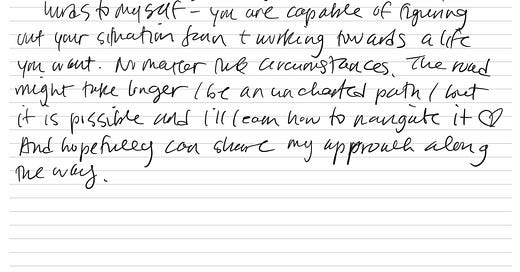 to myself - you are capable of figuring
out your situation & working towards a life
you want. No matter the circumstances. The road
might take longer / be an uncharted path / but
it is possible and I'll learn how to navigate it ♡
And hopefully can share my approach along
the way.